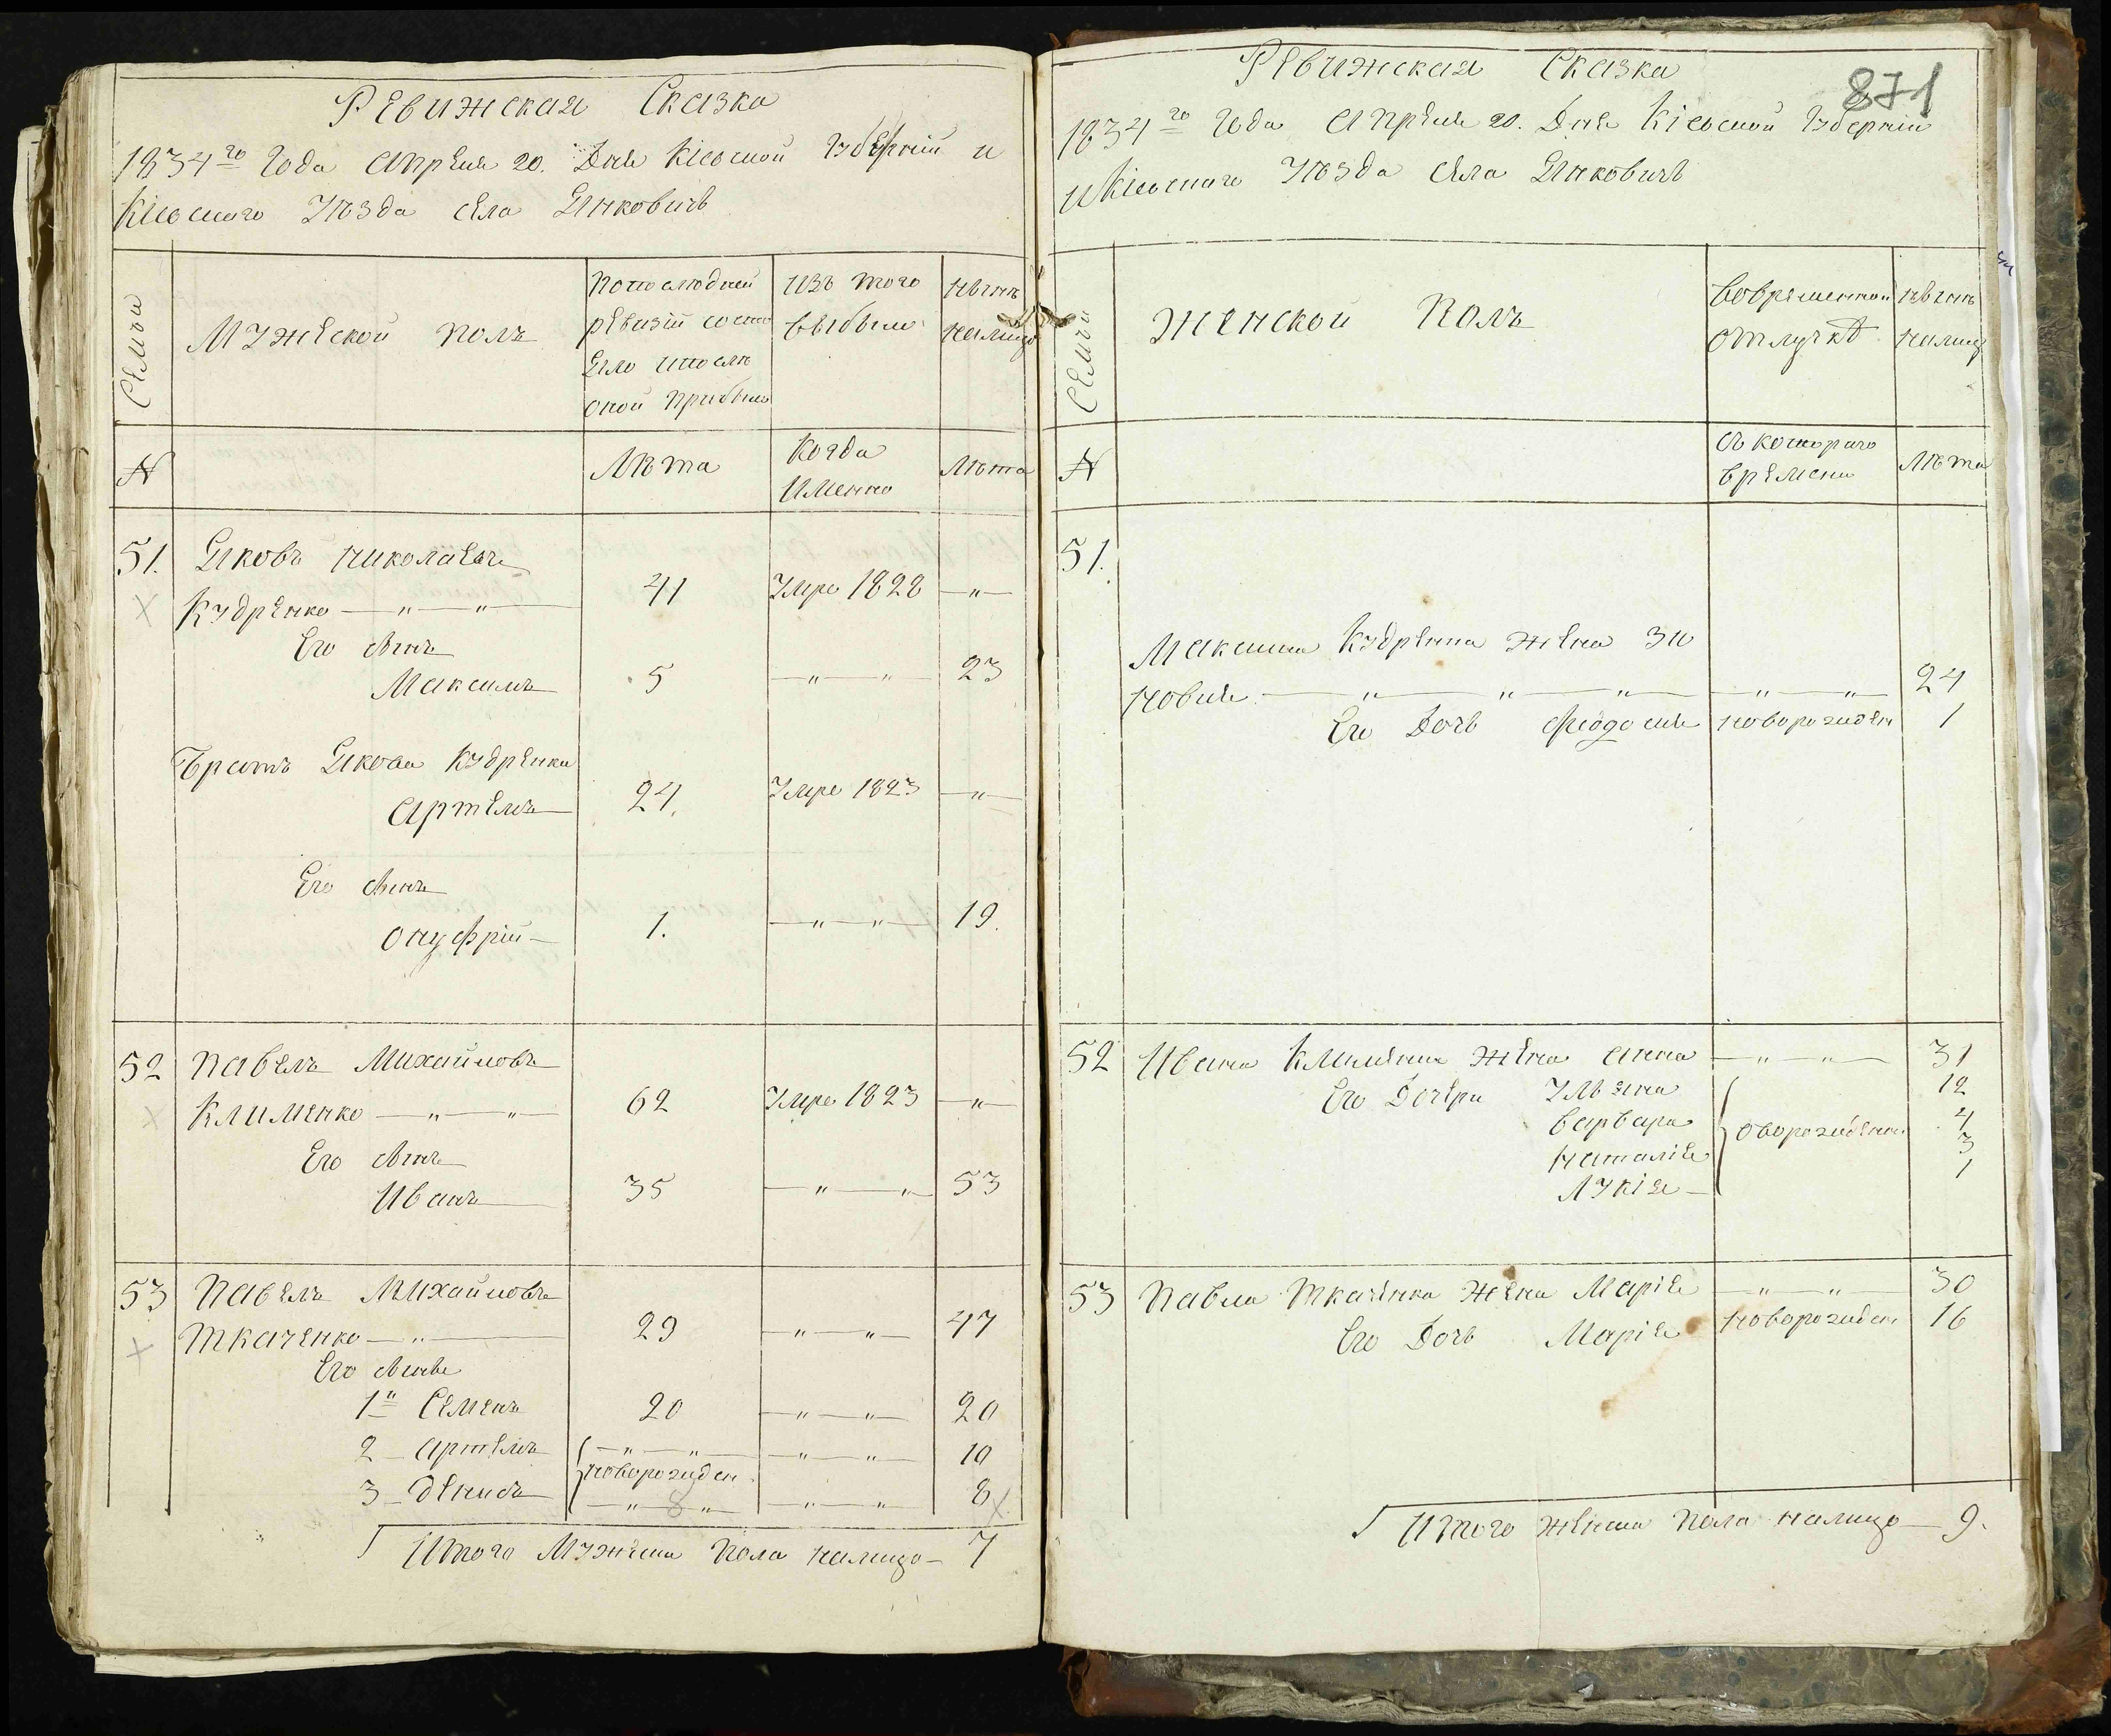 Ревижская Сказка
1834го Года Апреля 20. Дня Кіевской Губерніи и
Кіевскаго Уѣзда села Янковичь
Семьи
Мужеской полъ
По последней
ревизіи состо
яло и послѣ
оной прибыло
Изъ того
выбыло
Нынѣ
налицо
№
Лѣта
Когда
Именно
Лѣта
51. Яковъ Николаевъ
Кудренко — " — " 41 Умре 1828 — "
Его сынъ
Максимъ 5 — " — " 23
Братъ Якова Кудренка
Артемъ 24. Умре 1823 — "
Его сынъ
Онуфрій 1. — " — " 19.
52 Павелъ Михайловъ
Клименко — " — " 62 Умре 1823 — "
Его сынъ
Иванъ 35 — " — " 53
53 Павелъ Михайловъ
Ткаченко — " 29 — " — " 47
Его сыны
1й Семенъ 20 — " — " 20
2 Артемъ — " — " — " — " 10
новорожден
3 Денисъ — " 8 " — " — " 8
Итого Мужеска пола налицо — 7
871
Ревижская Сказка
1834го Года Апреля 20. Дня Кіевской Губерніи
и Кіевскаго Уѣзда села Янковичь
Семьи
Женской Полъ
Вовременной
отлучкѣ
Нынѣ
налицо
№
Съ котораго
времени
Лѣта
51.
Максима Кудренка жена Зи
новия — " — " — " — " — " 24
Его Дочь Феодосия новорожден 1
52 Ивана Клименка жена Анна — " — " 31
Его Дочери Ульяна 12
Варвара 4
новорожденны
Наталія 3
Лукія 1
53 Павла Ткаченка жена Марія — " — " 30
Его Дочь Марія новорожден 16
Итого женска пола налицо — 9.